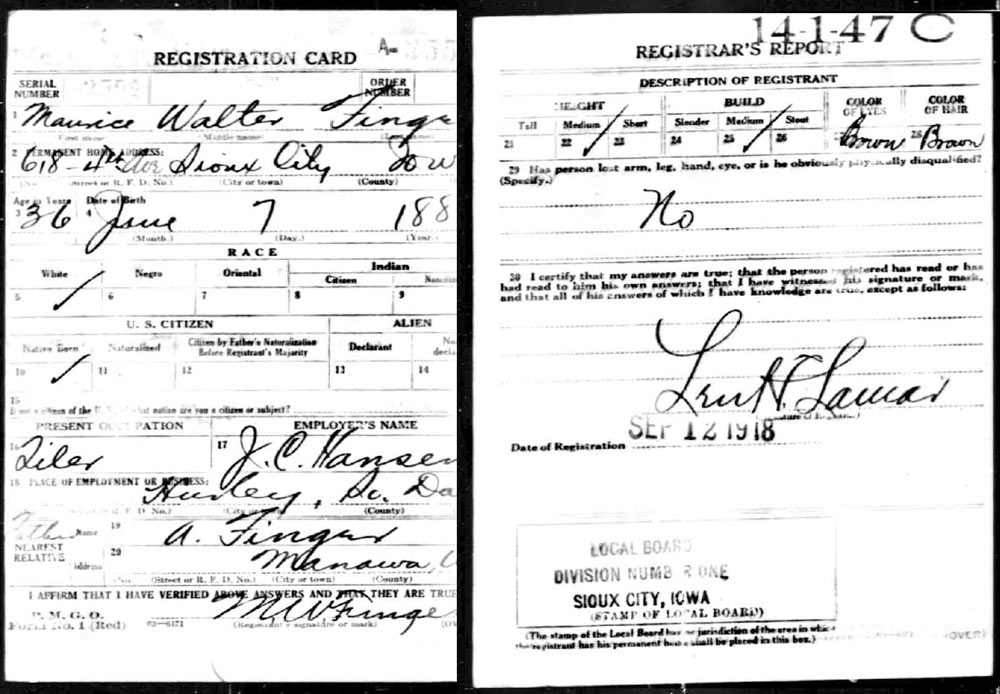 REGISTRATION CARD
SERIAL NUMBER
ORDER NUMBER
1 Maurice Walter Finge
First name Middle name
2 PERMANENT HOME ADDRESS:
618 - 4th Ave Sioux City Iow
(No.) (Street or R. F. D. No.) (City or town) (County)
Age in Years Date of Birth
3 36 4 June 7 188
(Month.) (Day.) (Year.)
RACE
White Negro Oriental Indian
Citizen
5 ✓ 6 7 8 9
U. S. CITIZEN ALIEN
Native Born Naturalized Citizen by Father's Naturalization Before Registrant's Majority Declarant
10 ✓ 11 12 13 14
15
If not a citizen of the U. S., of what nation are you a citizen or subject?
PRESENT OCCUPATION EMPLOYER'S NAME
16 Tiler 17 J. C. Hansen
18 PLACE OF EMPLOYMENT OR BUSINESS:
Hurley, So. Da
(County)
Father Name 19 A. Finger
NEAREST RELATIVE
Address 20 Manawa,
(No.) (Street or R. F. D. No.) (City or town) (County)
I AFFIRM THAT I HAVE VERIFIED ABOVE ANSWERS AND THAT THEY ARE TRUE
P. M. G. O.
Form No. 1 (Red) 03-6171 M W Finge
(Registrant's signature or mark)
14-1-47 C
REGISTRAR'S REPORT
DESCRIPTION OF REGISTRANT
HEIGHT BUILD COLOR OF EYES COLOR OF HAIR
Tall Medium Short Slender Medium Stout
21 22 ✓ 23 24 25 ✓ 26 Brown 28 Brown
29 Has person lost arm, leg, hand, eye, or is he obviously physically disqualified?
(Specify.)
No
30 I certify that my answers are true; that the person registered has read or has
had read to him his own answers; that I have witnessed his signature or mark,
and that all of his answers of which I have knowledge are true, except as follows:
Lamar
Date of Registration SEP 12 1918
LOCAL BOARD
DIVISION NUMBER ONE
SIOUX CITY, IOWA
(STAMP OF LOCAL BOARD)
(The stamp of the Local Board has jurisdiction of the area in which
the registrant has his permanent home shall be placed in this box.)
(OVER)